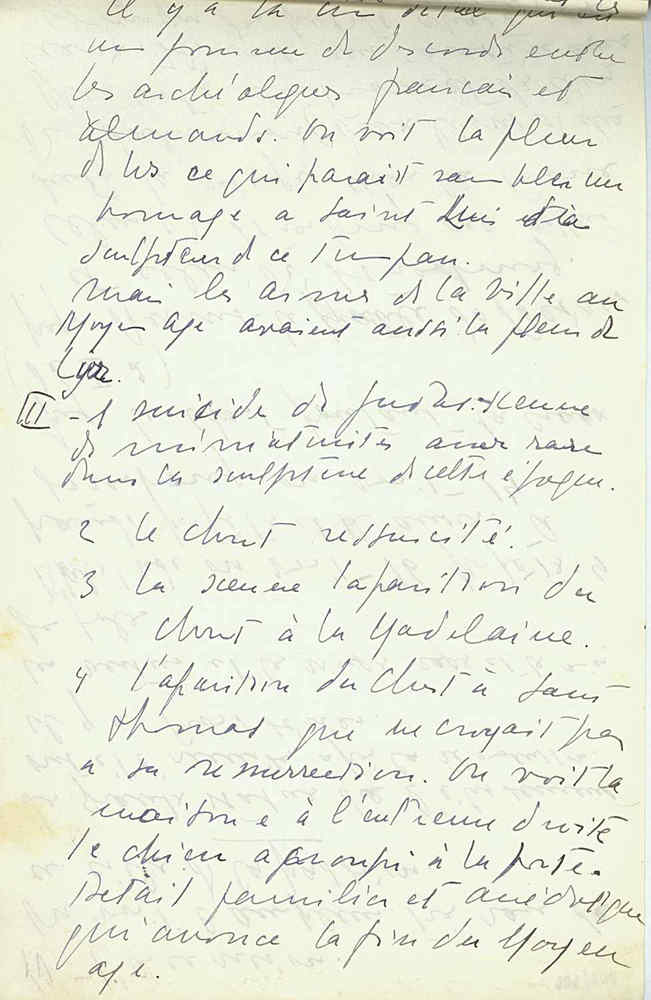 Il y a là un détail qui est
une pomme de discorde entre
les archéologues francais et
allemands. On voit la fleur
de lys ce qui parait sembler un
homage a saint Luis
sculpteur de ce timpan.
mais les armes de la ville au
Moyen age avaient aussi la fleur de
lys.
III - 1 suicide de Judas. scenne
de miniaturistes assez rare
dans la sculpture de cette époque.
2 le christ ressuscité.
3 la scenne l'aparition du
christ à la Madelaine.
4 l'aparition du Christ à saint
thomas que ne croyait pas
a sa resurrection. On voit la
maison e à l'extreme droite
le chien acroupi à la porte.
Detail familier et anédotique
qui anonce la fin du Moyen
age.